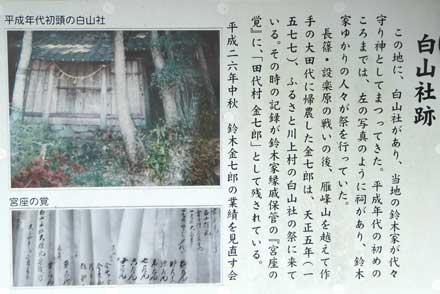 白山社跡
この地に、白山社があり、当地の鈴木家が代々
守り神としてまつってきた。平成年代の初めの
ころまでは、左の写真のように祠があり、鈴木
家ゆかりの人々が祭を行っていた。
長篠・設楽原の戦いの後、雁峰山を越えて作
手の大田代に帰農した金七郎は、天正五年(一
五七七)、ふるさと川上村の白山社の祭に来て
いる。その時の記録が鈴木家縁戚保管の『宮座の
覚』に、「田代村 金七郎」として残されている。
平成二六年中秋 鈴木金七郎の業績を見直す会
平成年代初頭の白山社
宮座の覚